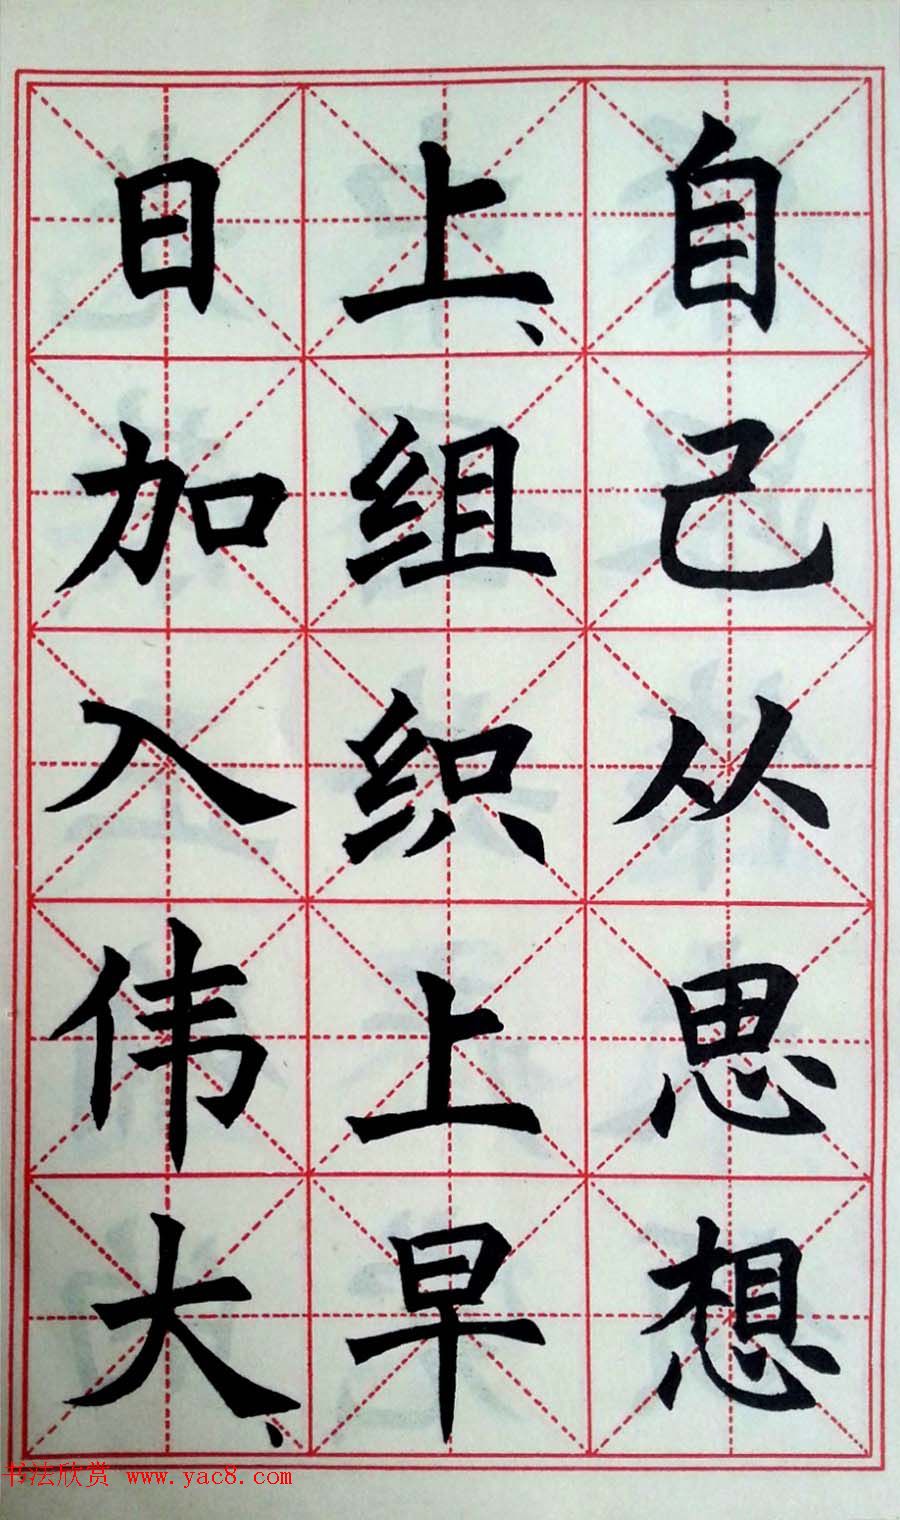 自己从思想
上、组织上早
日加入伟大、
书法欣赏 www.yac8.com